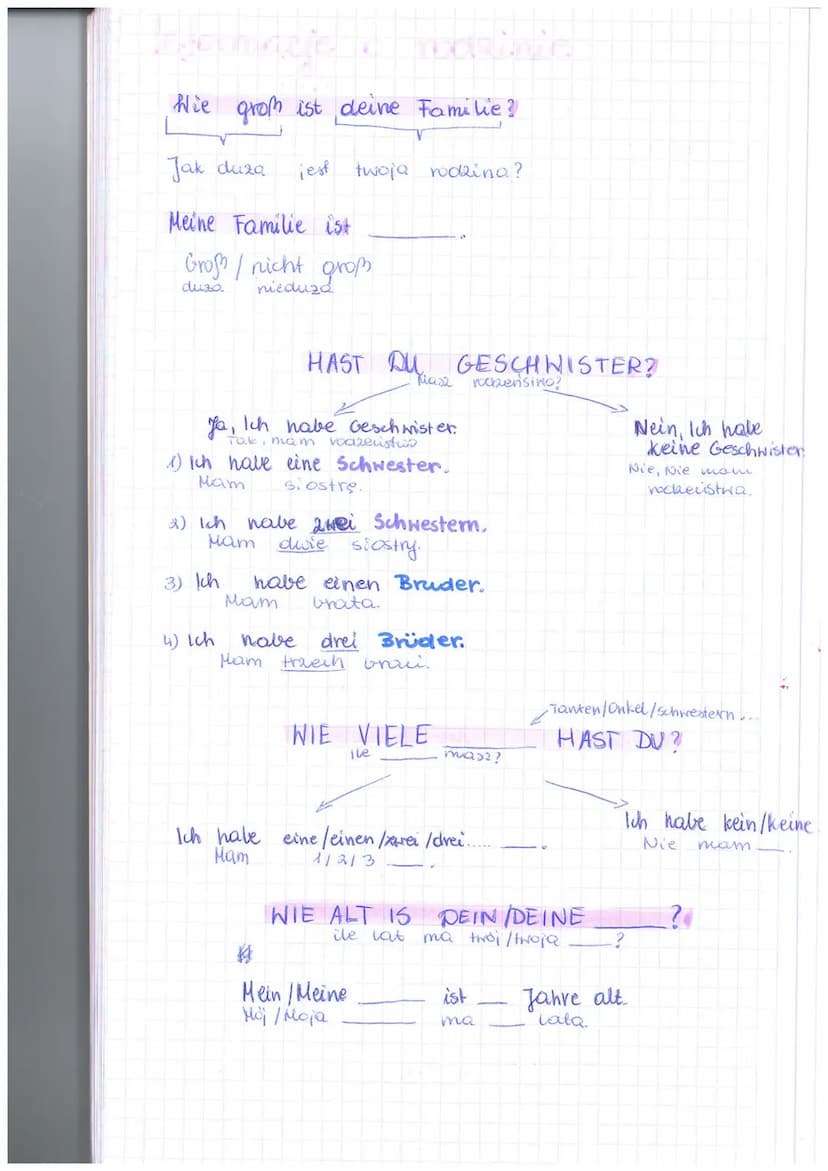 Wie groß ist deine Familie?
Jak duża jest twoja rodzina?
Meine Familie ist ______.
Groß / nicht groß
duża nieduża
HAST DU GESCHWISTER?
Masz rodzeństwo?
Ja, Ich habe Geschwister.
Tak, mam rodzeństwo
Nein, Ich habe
keine Geschwister
Nie, Nie mam
rodzeństwa.
1) Ich habe eine Schwester.
Mam siostrę.
2) Ich habe zwei Schwestern.
Mam dwie siostry.
3) Ich habe einen Bruder.
Mam brata.
4) Ich habe drei Brüder.
Mam trzech braci.
Tanten/Onkel/Schwestern...
WIE VIELE ______ HAST DU?
ile ____ masz?
Ich habe eine/einen/zwei/drei..... ____.
Mam 1/2/3 ___.
Ich habe kein/keine
Nie mam ___.
WIE ALT IS DEIN/DEINE ______?
ile lat ma twój/twoja ____?
Mein/Meine ______ ist ___ Jahre alt.
Mój/Moja ______ ma ___ lata.